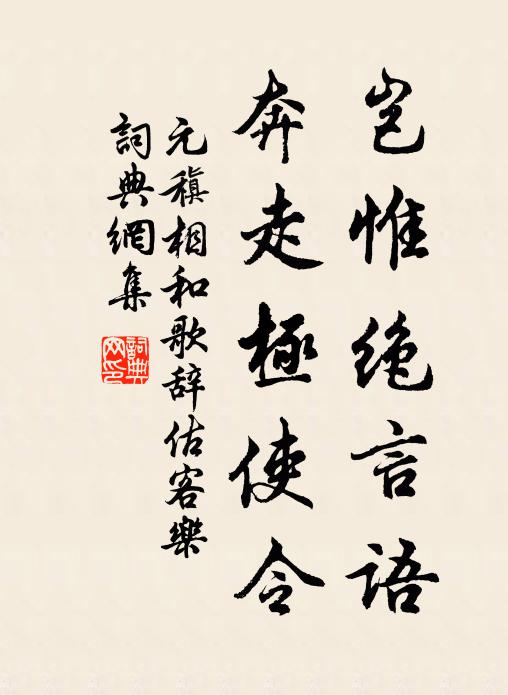 岂惟绝言语
奔走極使令
元稹相和歌辞估客樂
詞典網集
詞典网印